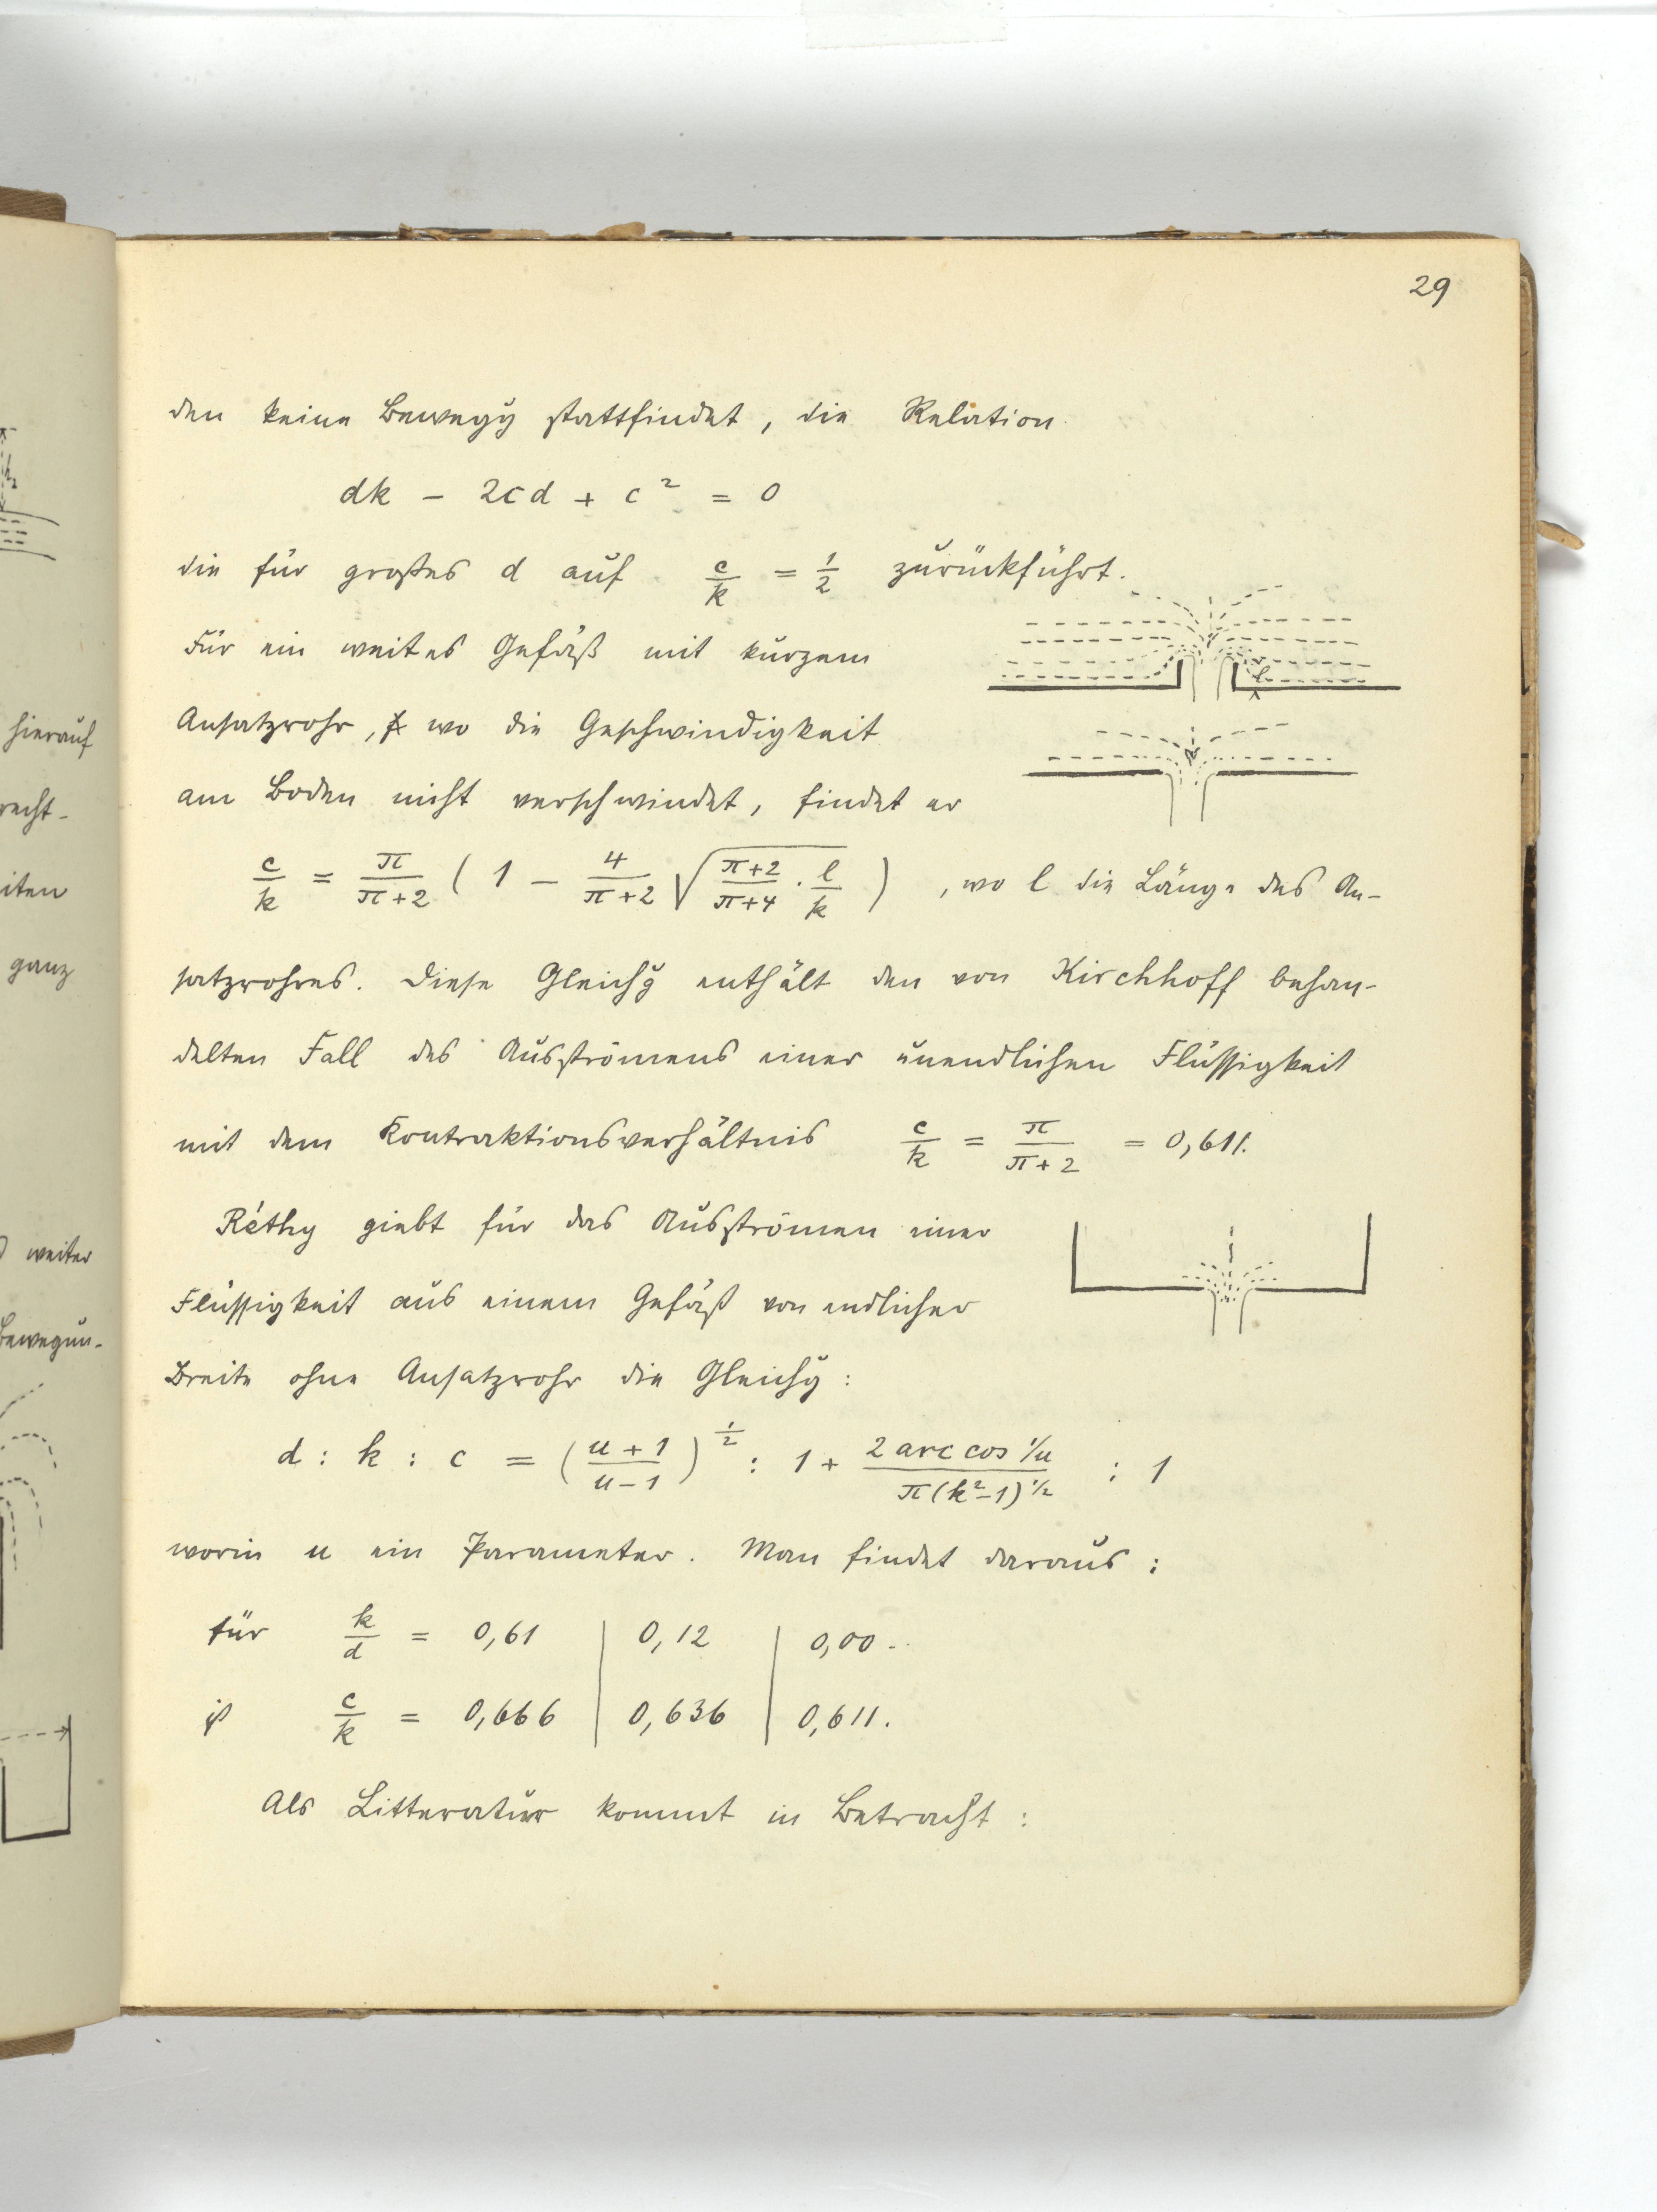 29
den keine Bewegg stattfindet, die Relation
dk − 2cd + c² = 0
die für großes d auf c/k = 1/2 zurückführt.
Für ein weites Gefäß mit kurzem
Ansatzrohr, wo die Geschwindigkeit
am Boden nicht verschwindet, findet er
c/k = π/(π+2) ( 1 − 4/(π+2) √((π+2)/(π+4) · l/k) ) , wo l die Länge des An-
satzrohres. Diese Gleichg enthält den von Kirchhoff behan-
delten Fall des Ausströmens einer unendlichen Flüssigkeit
mit dem Kontraktionsverhältnis c/k = π/(π+2) = 0,611.
Réthy giebt für das Ausströmen einer
Flüssigkeit aus einem Gefäß von endlicher
Breite ohne Ansatzrohr die Gleichg:
d : k : c = ((u+1)/(u−1))^½ : 1 + (2 arc cos 1/u)/(π(k²−1)^½) : 1
worin u ein Parameter. Man findet daraus:
für k/d = 0,61 | 0,12 | 0,00..
ist c/k = 0,666 | 0,636 | 0,611.
Als Litteratur kommt in Betracht:
hierauf
recht-
iten
ganz
weiter
Bewegun-